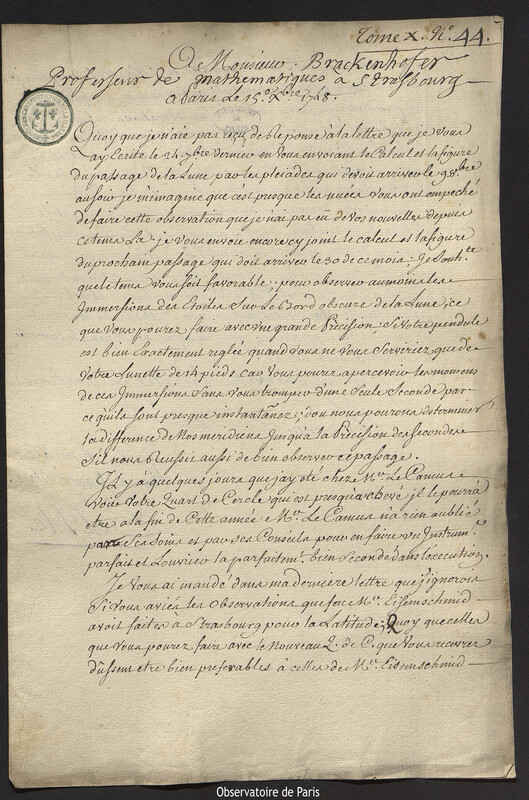 Tome X. N.° 44.
A Monsieur Brackenhofer
Professeur de mathematiques a Strasbourg
a Paris Le 15.e Xbre 1748.
Quoy que je n'aie pas reçu de Reponse a la lettre que je vous
ay Ecrite le 24 7bre dernier en vous envoyant le Calcul et la figure
du passage de la Lune par les pleiades qui devoit arriver le 9 8bre
au soir je m'imagine que c'est presque les nuées vous ont empeché
de faire cette observation que je n'ai pas eü de vos nouvelles depuis
ce tems La. je vous envoie encore cy joint le calcul et la figure
du prochain passage qui doit arriver le 30 de ce mois; Je Souh.te
que le tems vous soit favorable, pour observer au moins les
Immersions des Etoiles Sur Le Bord obscure de la Lune, ce
que vous pourez faire avec une grande Précision, Si Votre pendule
est bien Exactement reglée quand vous ne vous Serviriez que de
Votre Lunette de 14 pieds. car vous pourez apercevoir les momens
de ces Immersions Sans vous tromper d'une Seule Seconde par
ce quils sont presque instantañez; dou nous pourons determiner
la difference de Nos meridiens Jusqu'a la Précision des Secondes
S'il nous Reussit aussi de bien observer ce passage.
Il y a quelques jours que j'ay été chez M.r Le Camus
voir Votre Quart de Cercle qui est presqu'achevé, il le pourra
etre a la fin de Cette année M.r Le Camus n'a rien oublié
par Ses Soins et par Ses Conseils pour en faire un Instrum.t
parfait et L'ouvrier l'a parfaitem.t bien Secondé dans l'execution.
Je vous ai mandé dans ma derniere lettre que j'ignorois
Si vous aviés les Observations que feu M.r Eisemschmid
avoit faites a Strasbourg pour la Latitude; Quoy que celles
que vous pourez faire avec le Nouveau Q. de C. que Vous recevrez
dussent etre bien preferables à celles de M.r Eisemschmid
Observatoire de Paris